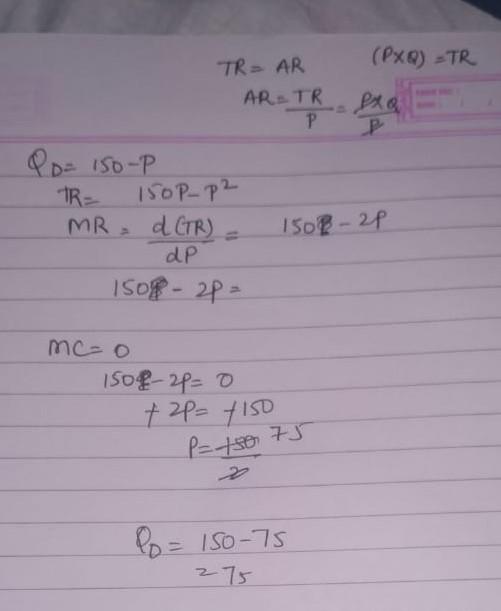 TR = AR (P×Q) = TR
AR = TR/P = P×Q/P
QD = 150 - P
TR = 150P - P²
MR = d(TR)/dP = 150 - 2P
150 - 2P =
MC = 0
150 - 2P = 0
+ 2P = +150
P = +150/2 75
QD = 150 - 75
= 75